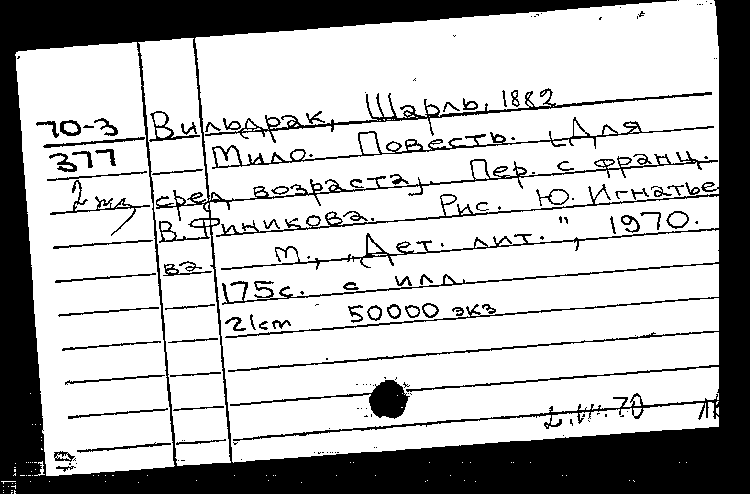 70-3 Вильдрак, Шарль, 1882
377 Мило. Повесть. [Для
2 экз сред возраста]. Пер. с франц.
В. Финикова. Рис. Ю. Игнатье
ва. М., „Дет. лит.", 1970.
175с. с илл.
21cm 50000 экз
2.VII.70